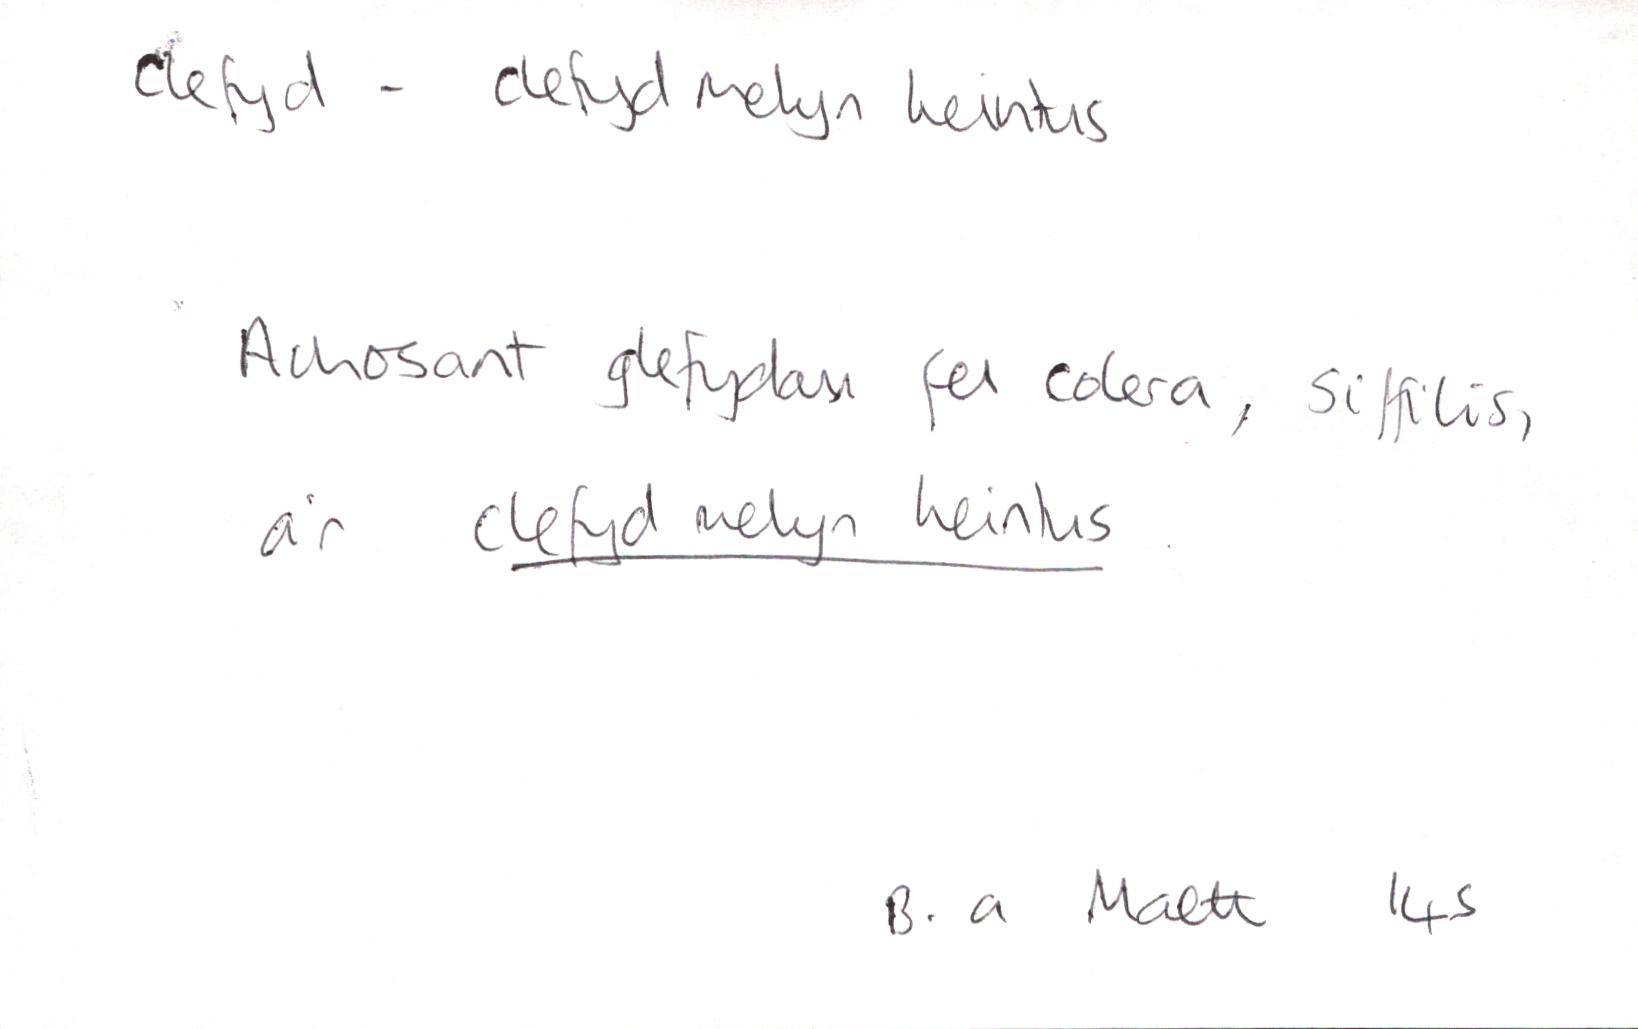 clefyd - clefyd melyn heintus
Achosant glefydau fel colera, siffilis,
a'r clefyd melyn heintus.
B. a Maeth 145